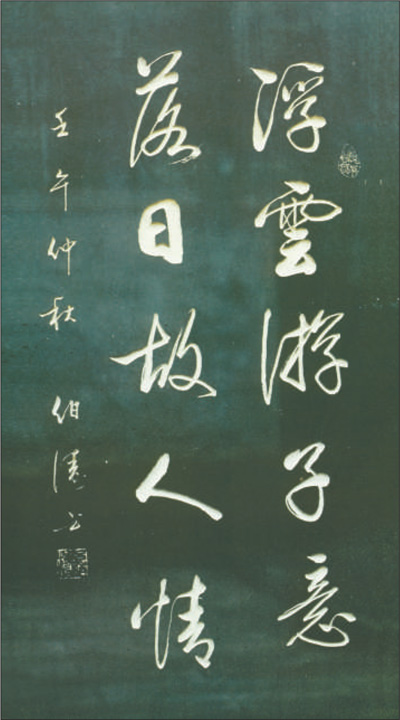 浮雲游子意
落日故人情
壬午仲秋 伯 书